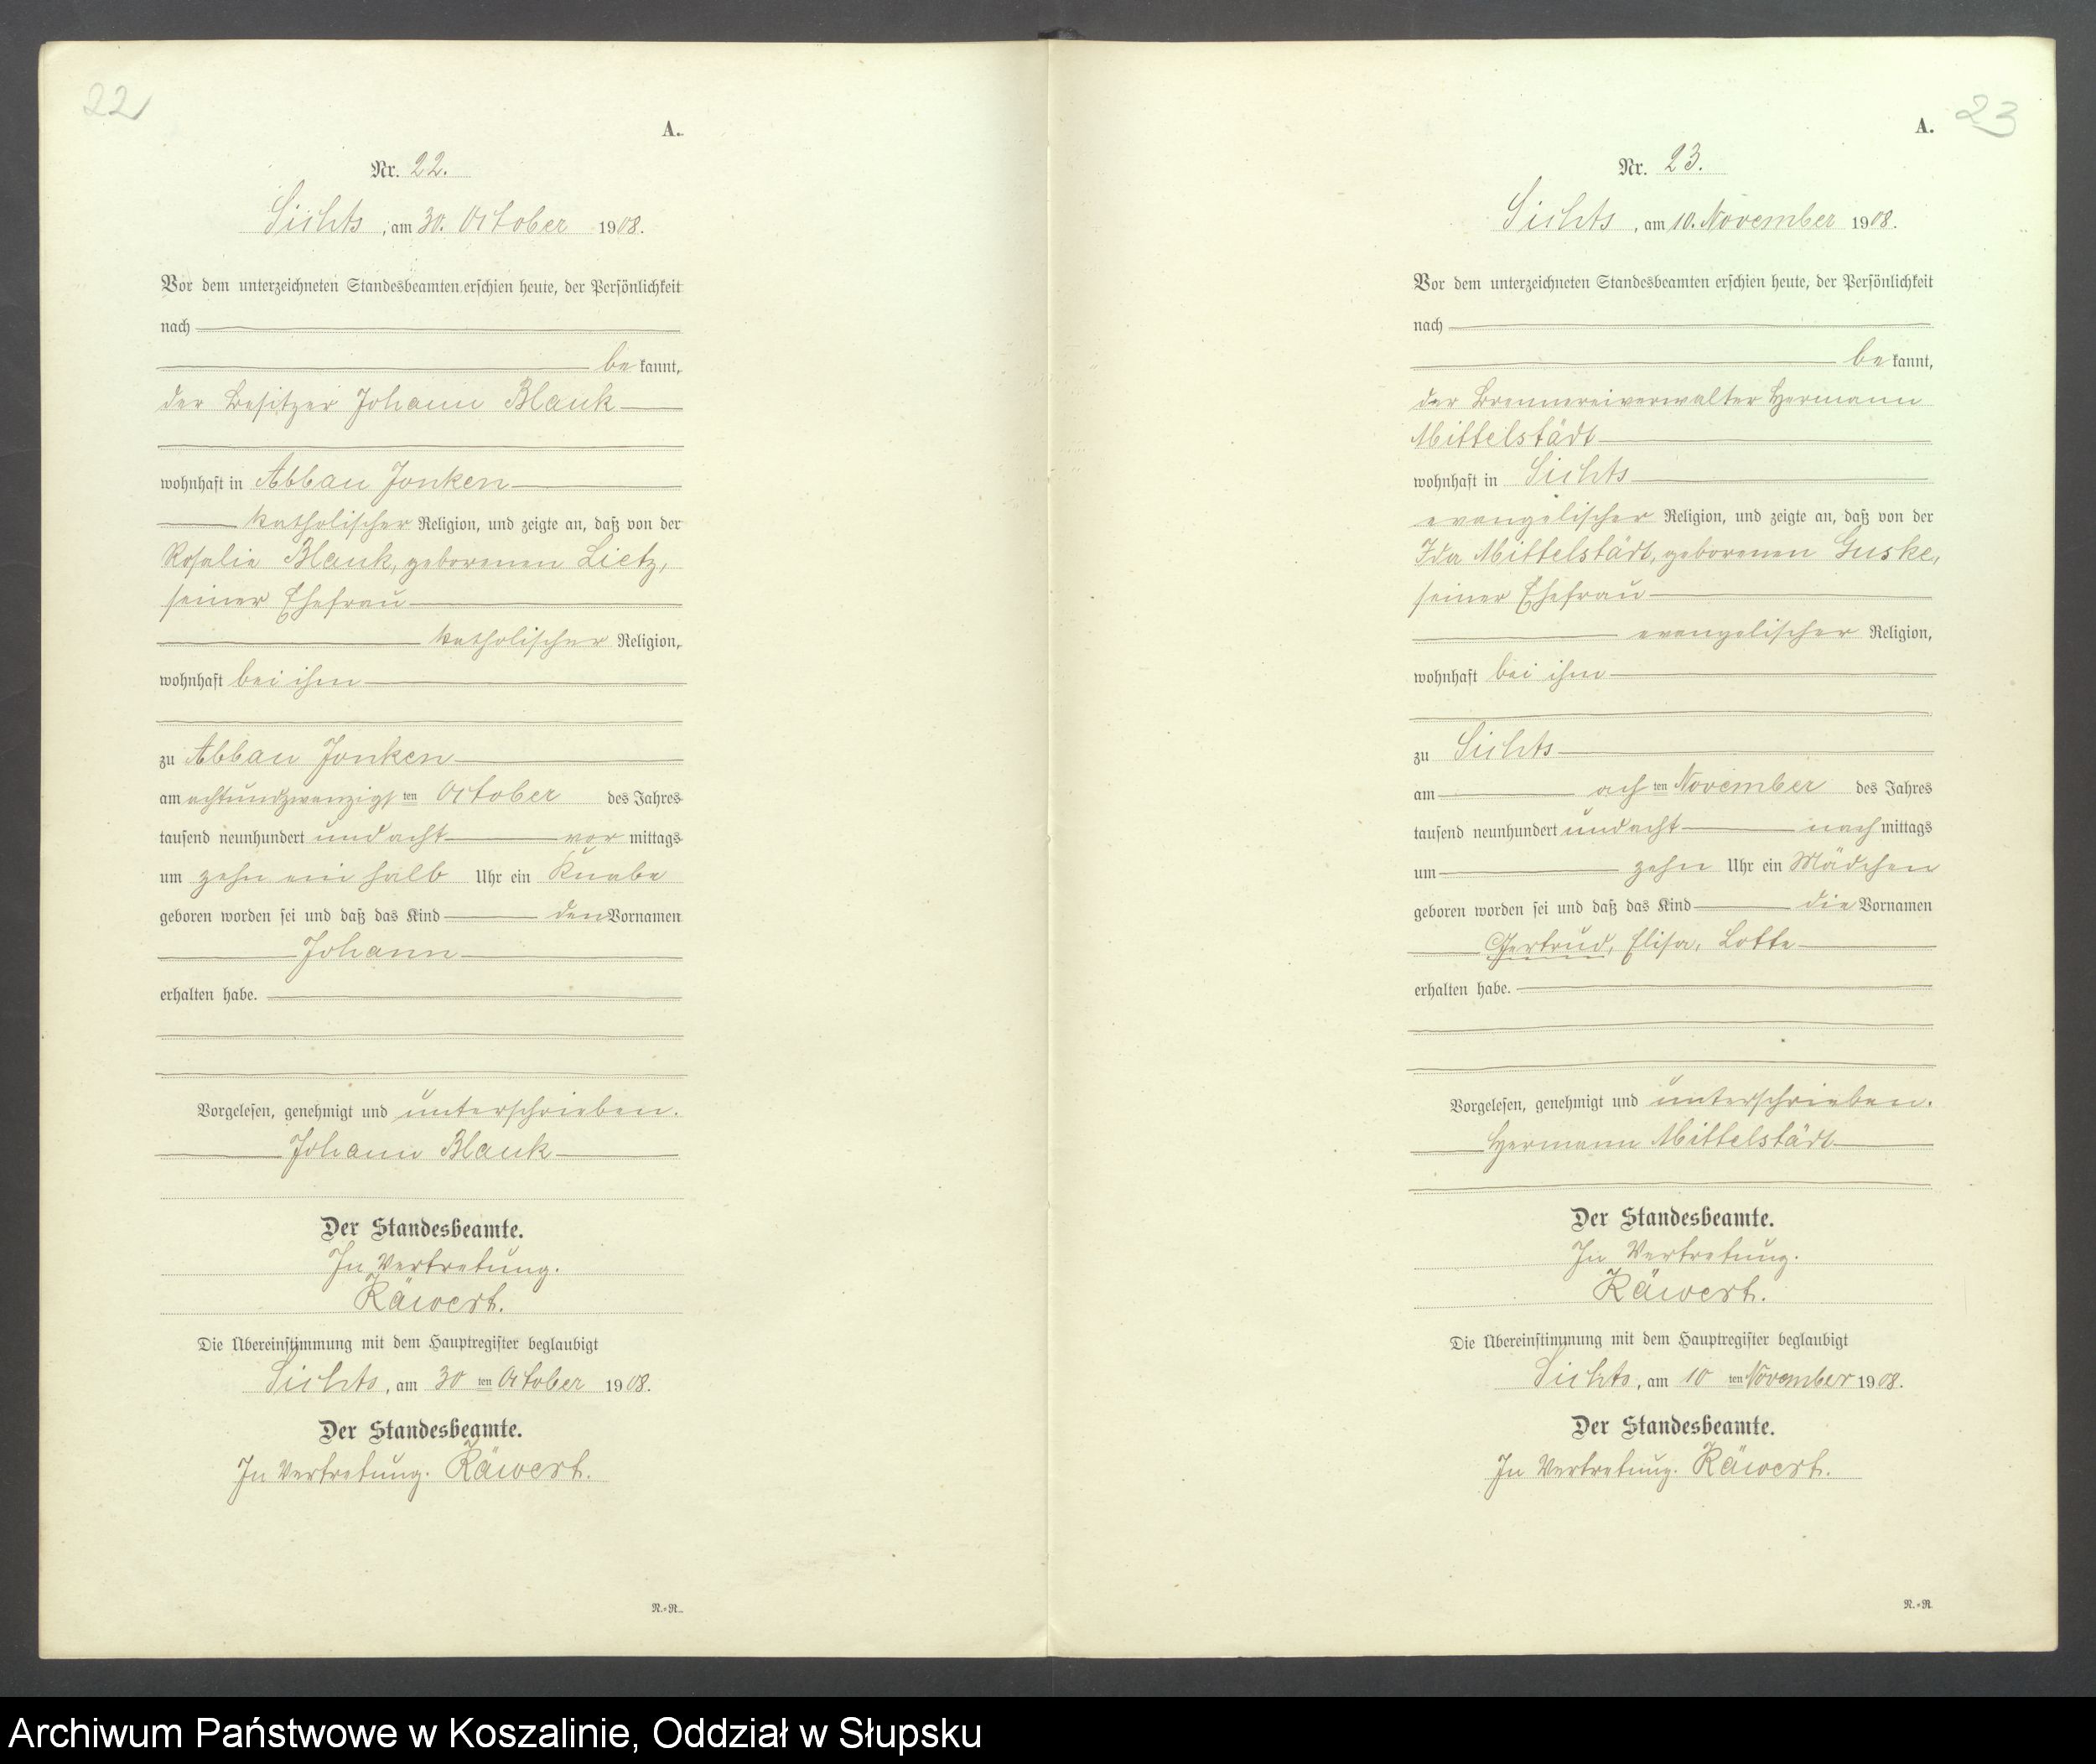 22
A.
Nr. 22.
Sichts, am 30. October 1908.
Vor dem unterzeichneten Standesbeamten erschien heute, der Persönlichkeit
nach
be kannt,
der Besitzer Johann Blank
wohnhaft in Abbau Jonken
katholischer Religion, und zeigte an, daß von der
Rosalie Blank, geborenen Lietz,
seiner Ehefrau
katholischer Religion,
wohnhaft bei ihm
zu Abbau Jonken
am achtundzwanzigsten October des Jahres
tausend neunhundert und acht vor mittags
um zehn ein halb Uhr ein Knabe
geboren worden sei und daß das Kind den Vornamen
Johann
erhalten habe.
Vorgelesen, genehmigt und unterschrieben.
Johann Blank
Der Standesbeamte.
In Vertretung.
Räwert.
Die Übereinstimmung mit dem Hauptregister beglaubigt
Sichts, am 30 ten October 1908.
Der Standesbeamte.
In Vertretung. Räwert.
N.-R.
23
A.
Nr. 23.
Sichts, am 10. November 1908.
Vor dem unterzeichneten Standesbeamten erschien heute, der Persönlichkeit
nach
be kannt,
der Brennereiverwalter Hermann
Mittelstädt
wohnhaft in Sichts
evangelischer Religion, und zeigte an, daß von der
Ida Mittelstädt, geborenen Guske,
seiner Ehefrau
evangelischer Religion,
wohnhaft bei ihm
zu Sichts
am ach ten November des Jahres
tausend neunhundert und acht nach mittags
um zehn Uhr ein Mädchen
geboren worden sei und daß das Kind die Vornamen
Gertrud, Elisa, Lotte
erhalten habe.
Vorgelesen, genehmigt und unterschrieben.
Hermann Mittelstädt
Der Standesbeamte.
In Vertretung.
Räwert.
Die Übereinstimmung mit dem Hauptregister beglaubigt
Sichts, am 10 ten November 1908.
Der Standesbeamte.
In Vertretung. Räwert.
N.-R.
Archiwum Państwowe w Koszalinie, Oddział w Słupsku